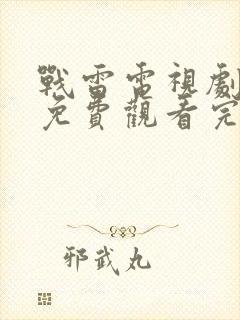 戰雷雷視劇
免費觀看完
邪武丸